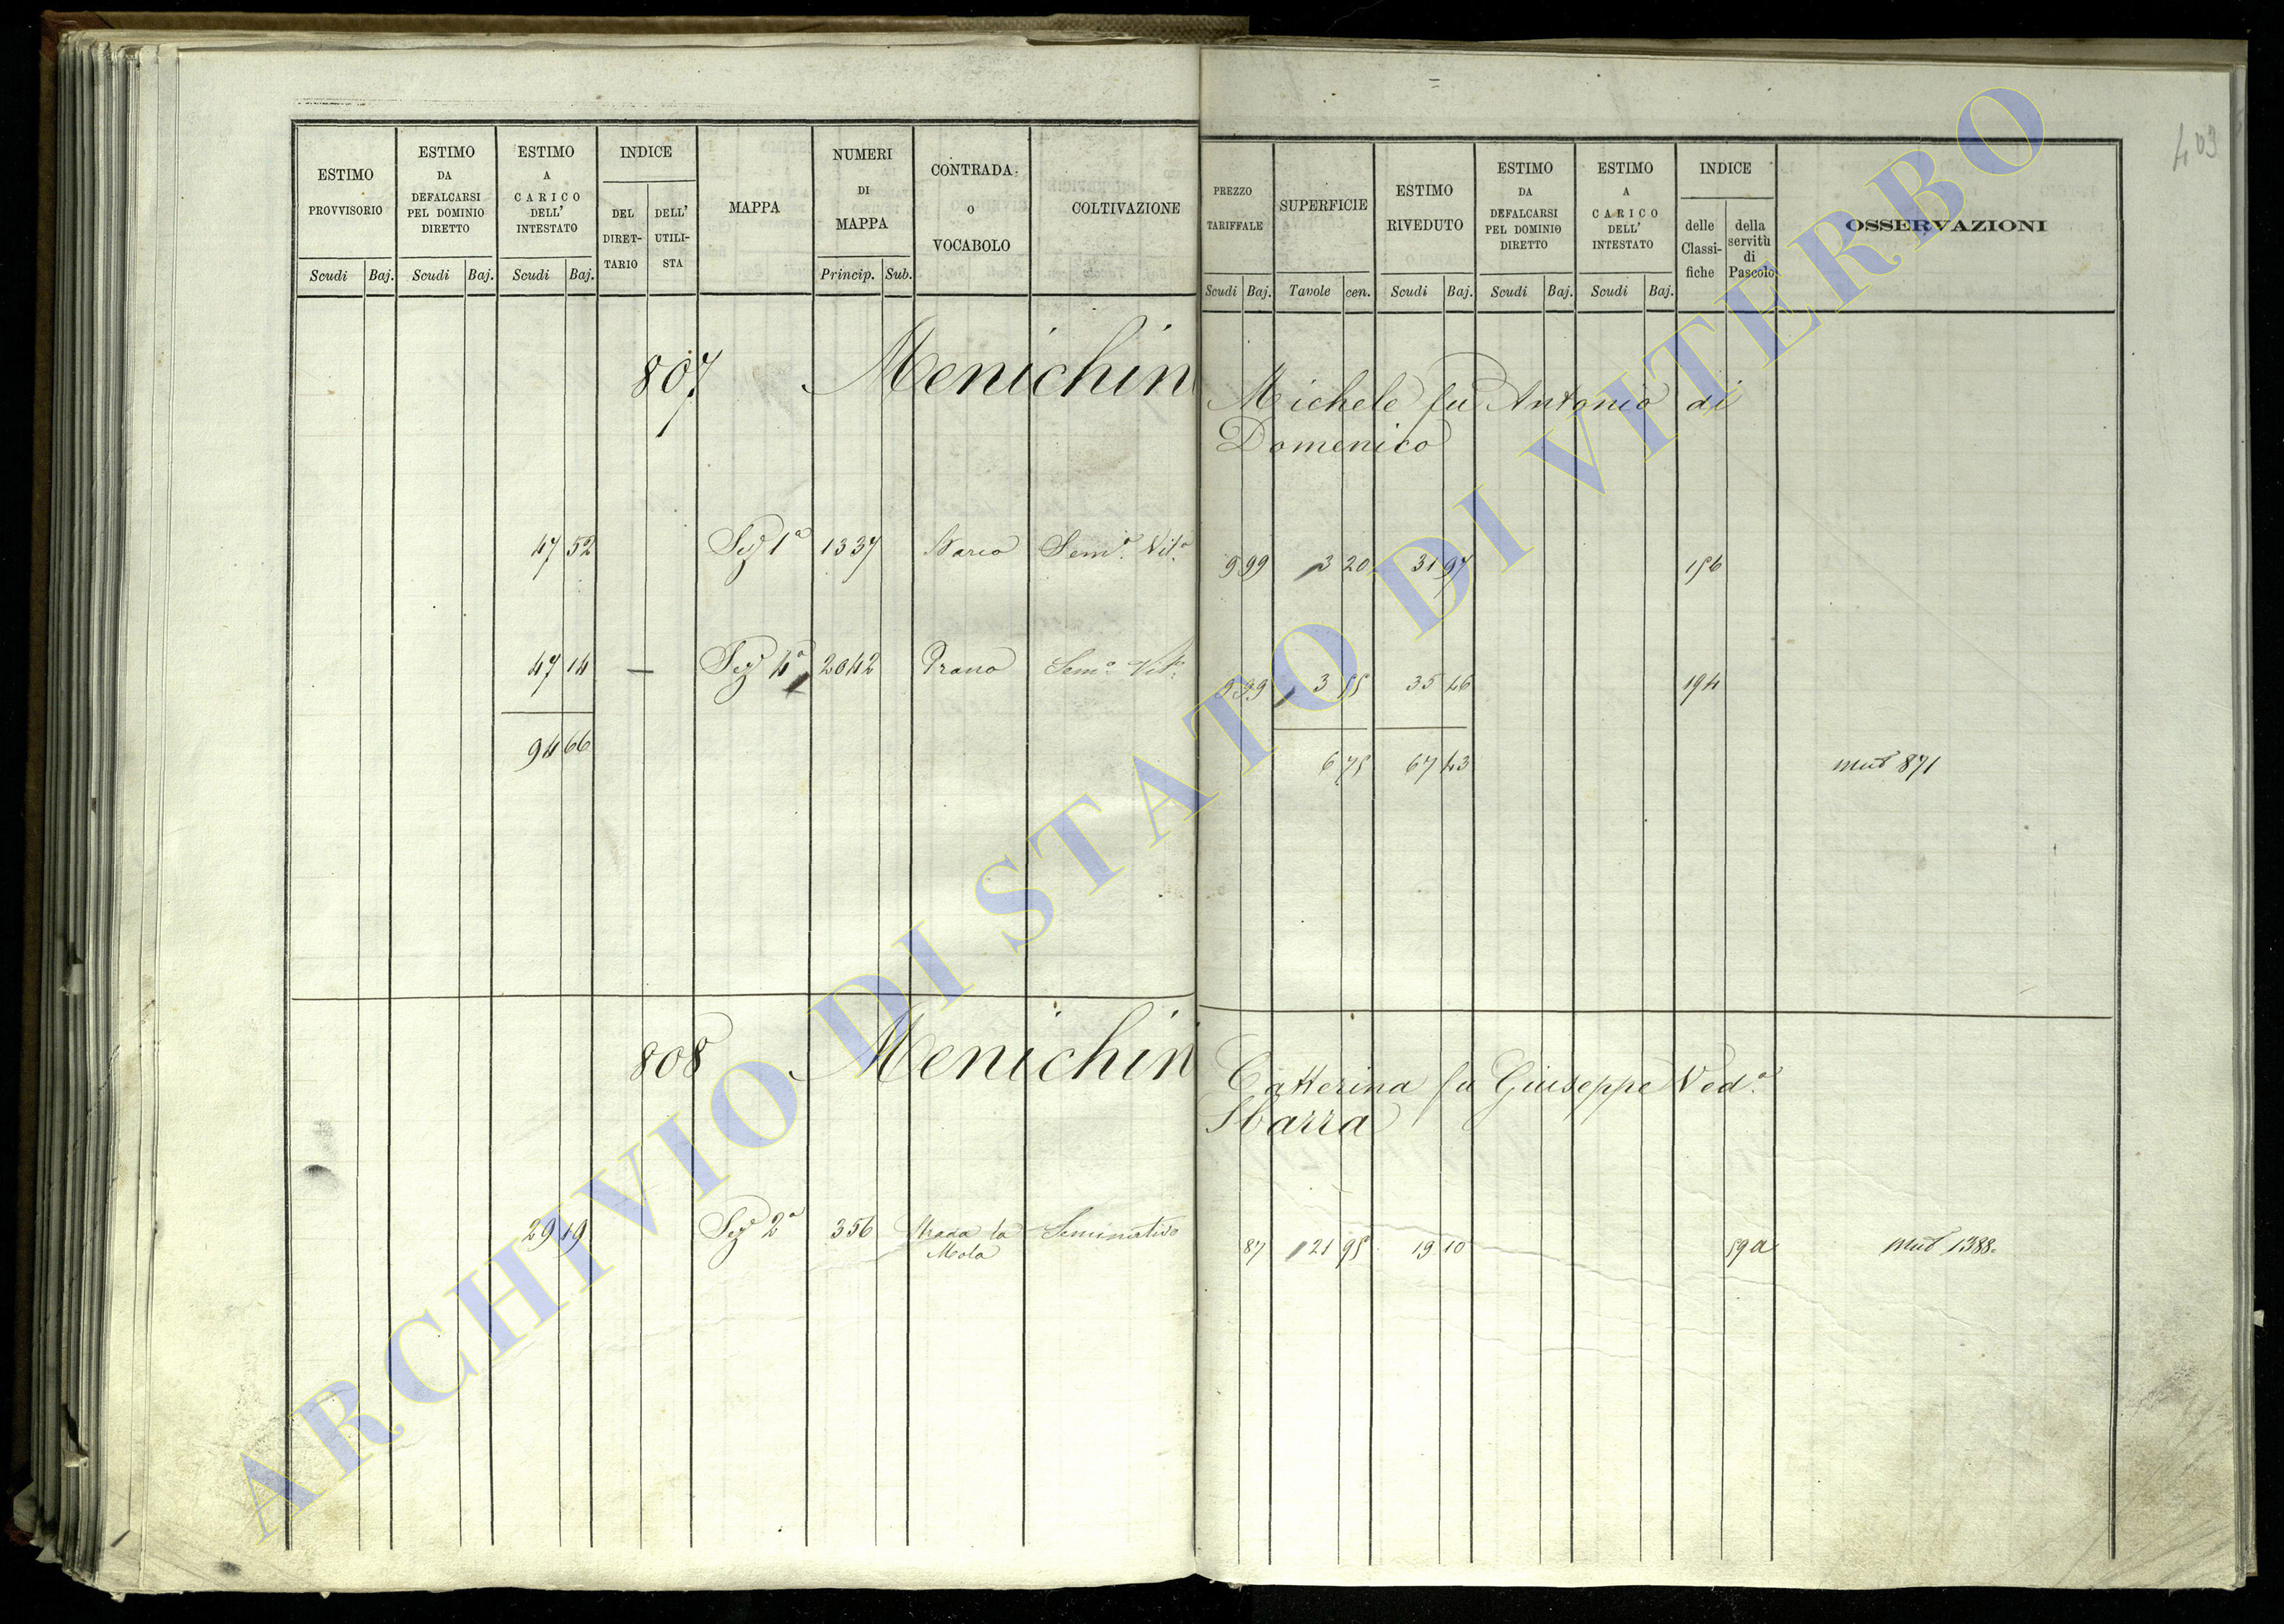 403
ESTIMO PROVVISORIO
Scudi Baj.
ESTIMO DA DEFALCARSI PEL DOMINIO DIRETTO
Scudi Baj.
ESTIMO A CARICO DELL' INTESTATO
Scudi Baj.
INDICE
DEL DIRET-TARIO
DELL' UTILI-STA
MAPPA
NUMERI DI MAPPA
Princip. Sub.
CONTRADA o VOCABOLO
COLTIVAZIONE
PREZZO TARIFFALE
Scudi Baj.
SUPERFICIE
Tavole cen.
ESTIMO RIVEDUTO
Scudi Baj.
ESTIMO DA DEFALCARSI PEL DOMINIO DIRETTO
Scudi Baj.
ESTIMO A CARICO DELL' INTESTATO
Scudi Baj.
INDICE
delle Classi-fiche
della servitù di Pascolo
OSSERVAZIONI
807 Menichini Michele fu Antonio di
Domenico
47 52 Sez 1a 1337 Sem.o Vit.o 9 99 3 20 31 97 156
47 14 — Sez 4a 2042 Prano Sem.o Vit.o 9 99 3 55 35 46 194
94 66 6 75 67 43 mut 871
808 Menichin Catterina fu Giuseppe Ved.a
Sbarra
29 19 Sez 2a 356 Strada la Seminativo 87 21 95 19 10 59a Mut 1388.
Mola
ARCHIVIO DI STATO DI VITERBO